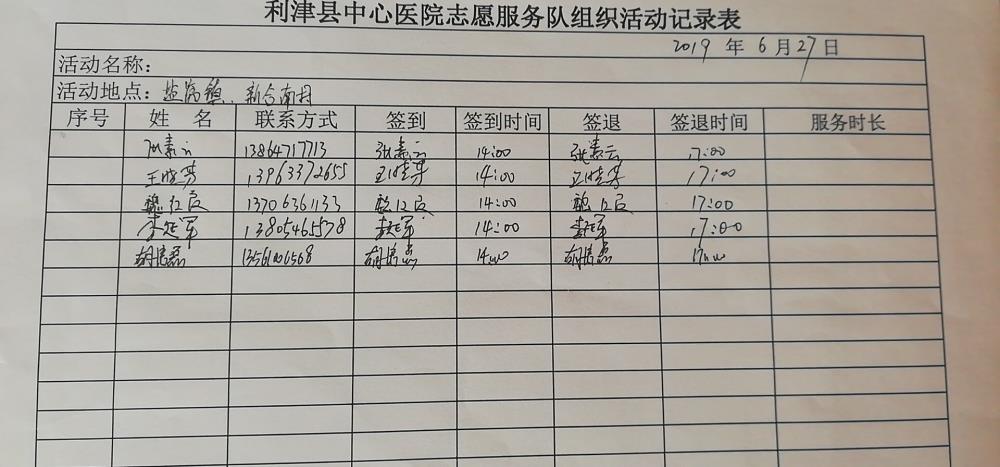 利津县中心医院志愿服务队组织活动记录表
2019 年 6 月 27 日
活动名称：
活动地点：盐窝镇、新合南村
序号 姓 名 联系方式 签到 签到时间 签退 签退时间 服务时长
张素云 13864717713 张素云 14:00 张素云 17:00
王晓芳 13963372655 王晓芳 14:00 王晓芳 17:00
13706361133 14:00 17:00
李延军 13805465578 李延军 14:00 李延军 17:00
14:00 17:00